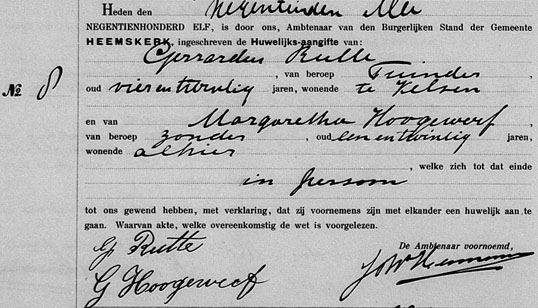 Heden den Negentienden Mei
NEGENTIENHONDERD ELF, is door ons, Ambtenaar van den Burgerlijken Stand der Gemeente
HEEMSKERK, ingeschreven de Huwelijks-aangifte van:
Gerrardus Rutte
, van beroep Tuinder,
№ 8 oud vierentwintig jaren, wonende te Velsen
en van Margaretha Hoogewerf,
van beroep zonder, oud eenentwintig jaren,
wonende alhier
, welke zich tot dat einde
in persoon
tot ons gewend hebben, met verklaring, dat zij voornemens zijn met elkander een huwelijk aan te
gaan. Waarvan akte, welke overeenkomstig de wet is voorgelezen.
G Rutte
De Ambtenaar voornoemd,
G Hoogewerf